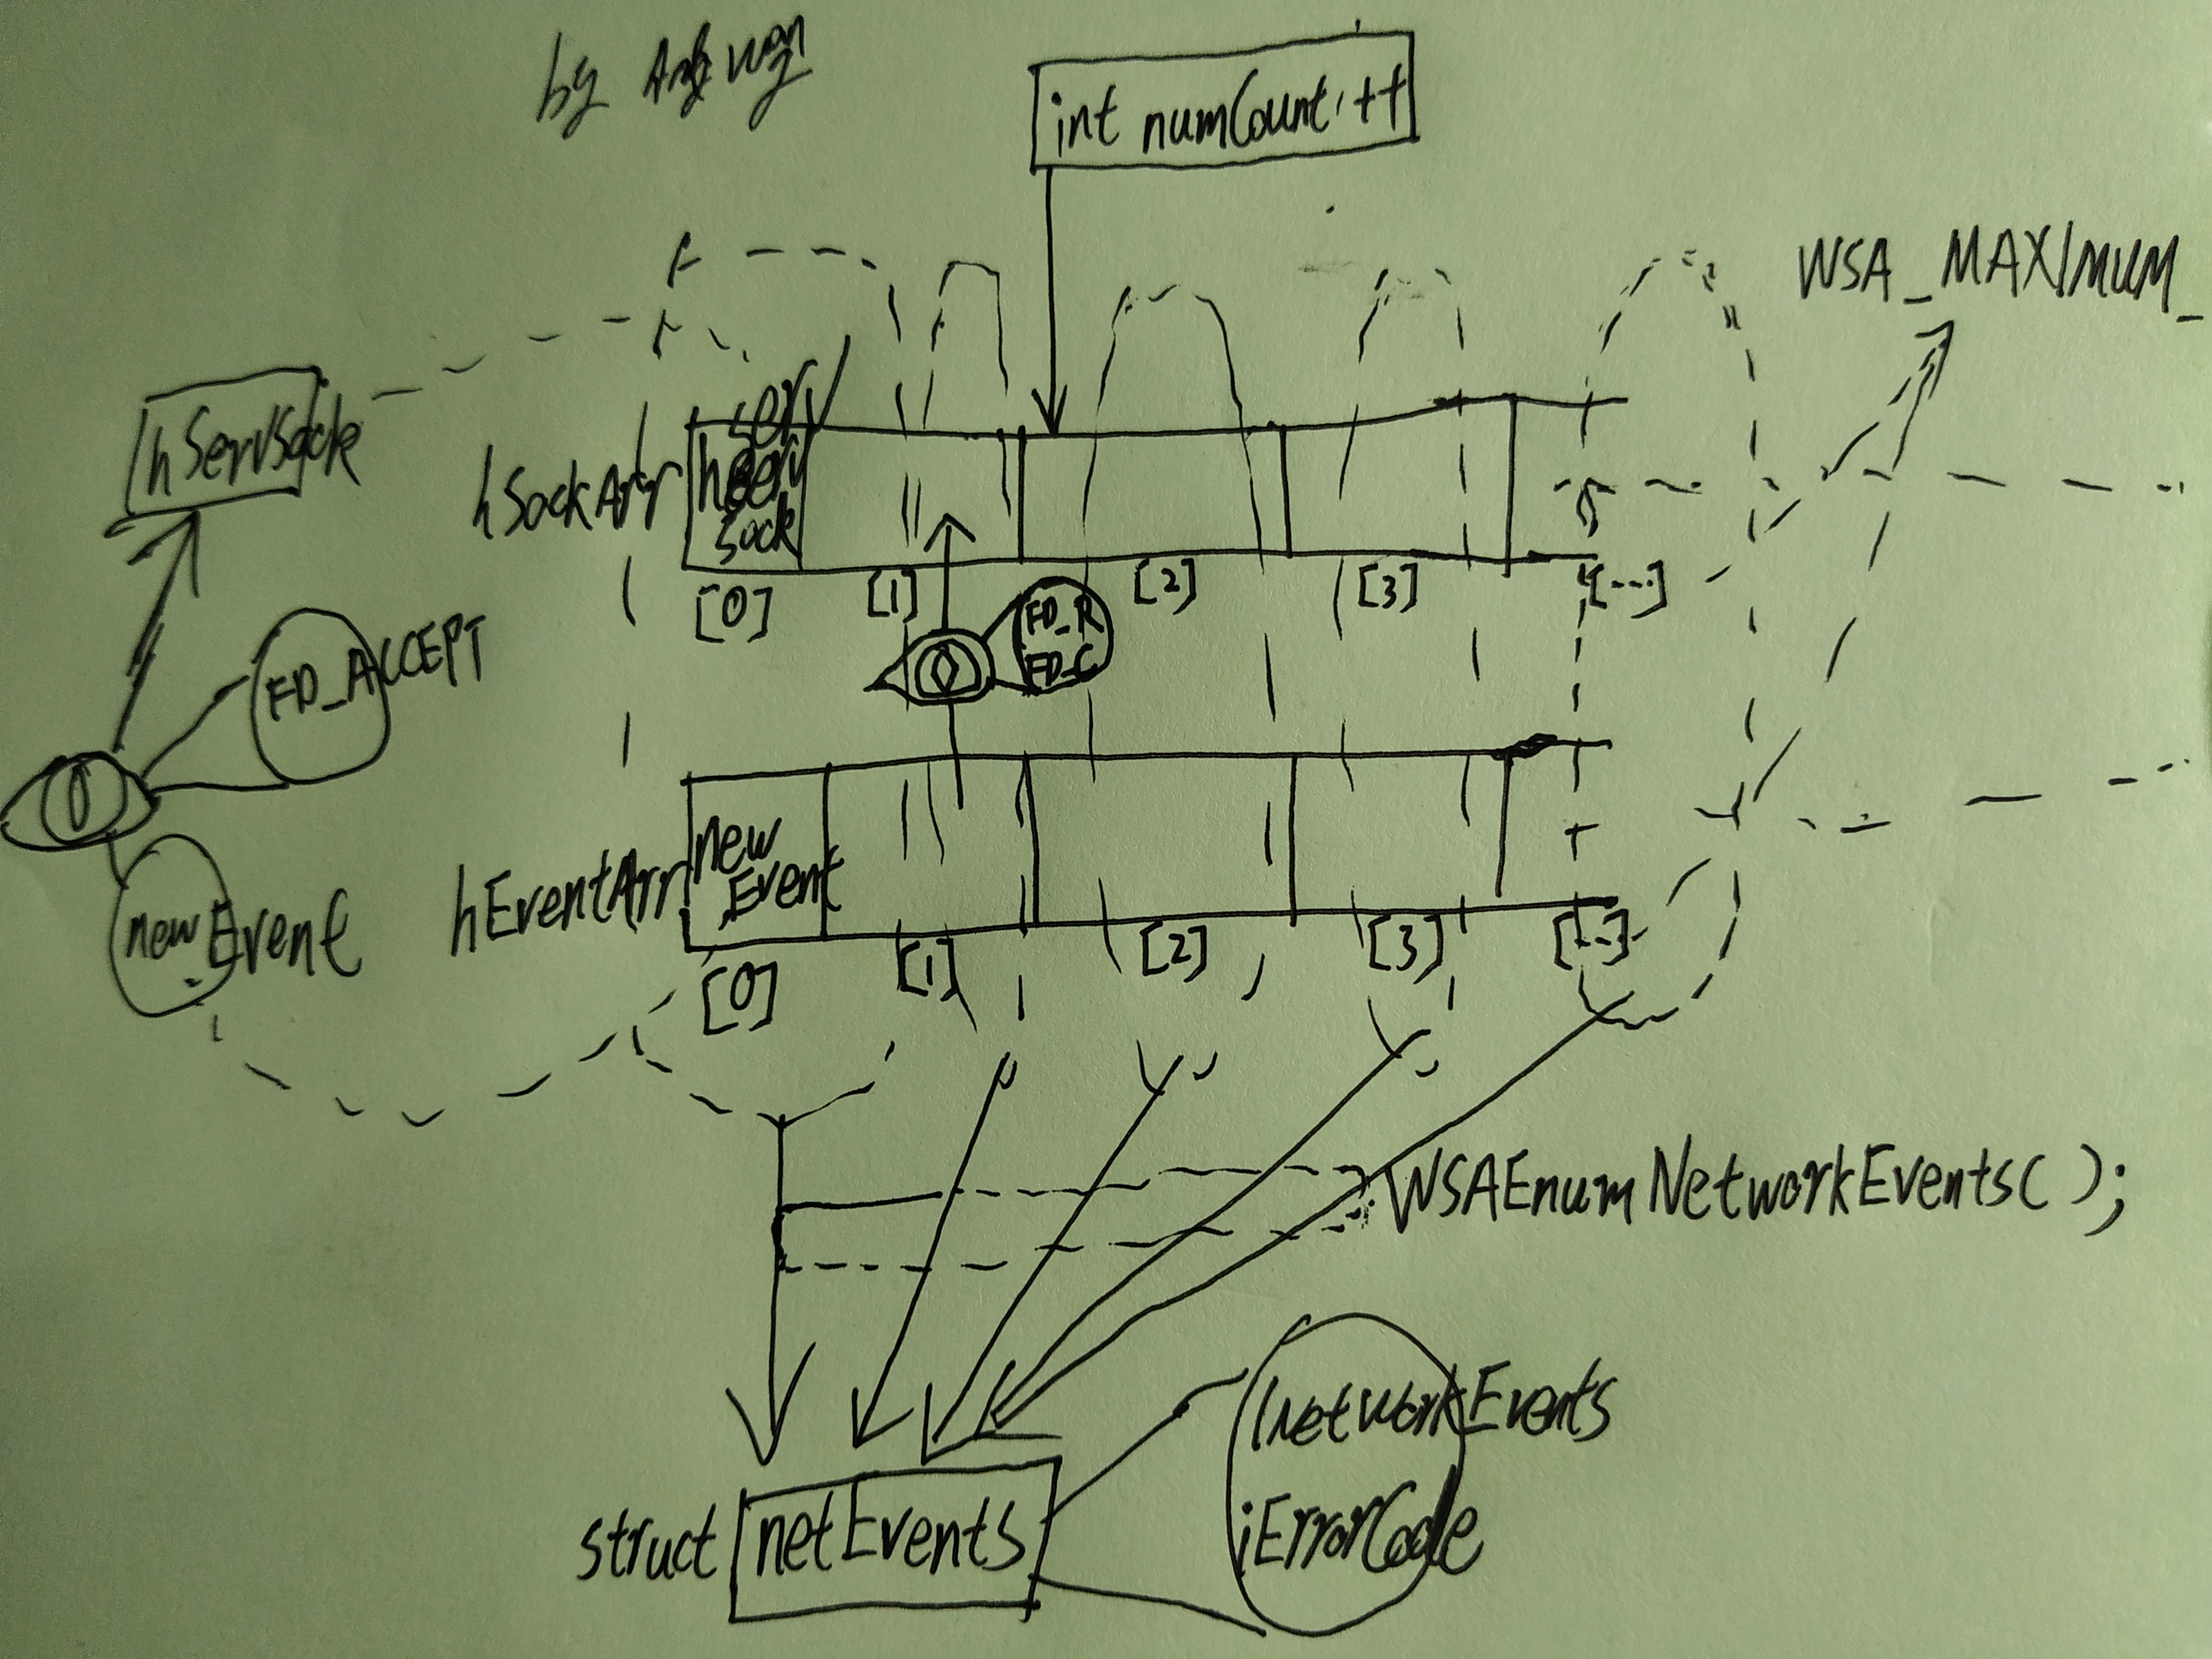 by
int numCount++
WSA_MAXIMUM_
hServSock
hSockArr
serv
sock
[0]
[1]
[2]
[3]
[...]
FD_R
FD_C
FD_ACCEPT
newEvent
hEventArr
new
Event
[0]
[1]
[2]
[3]
[...]
WSAEnumNetworkEvents( );
struct netEvents
lNetworkEvents
iErrorCode